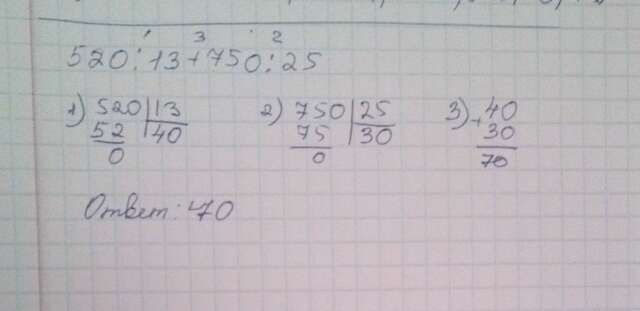 1 3 2
520:13+750:25
1) 520 13 2) 750 25 3) + 40
52 40 75 30 30
0 0 70
Ответ: 70